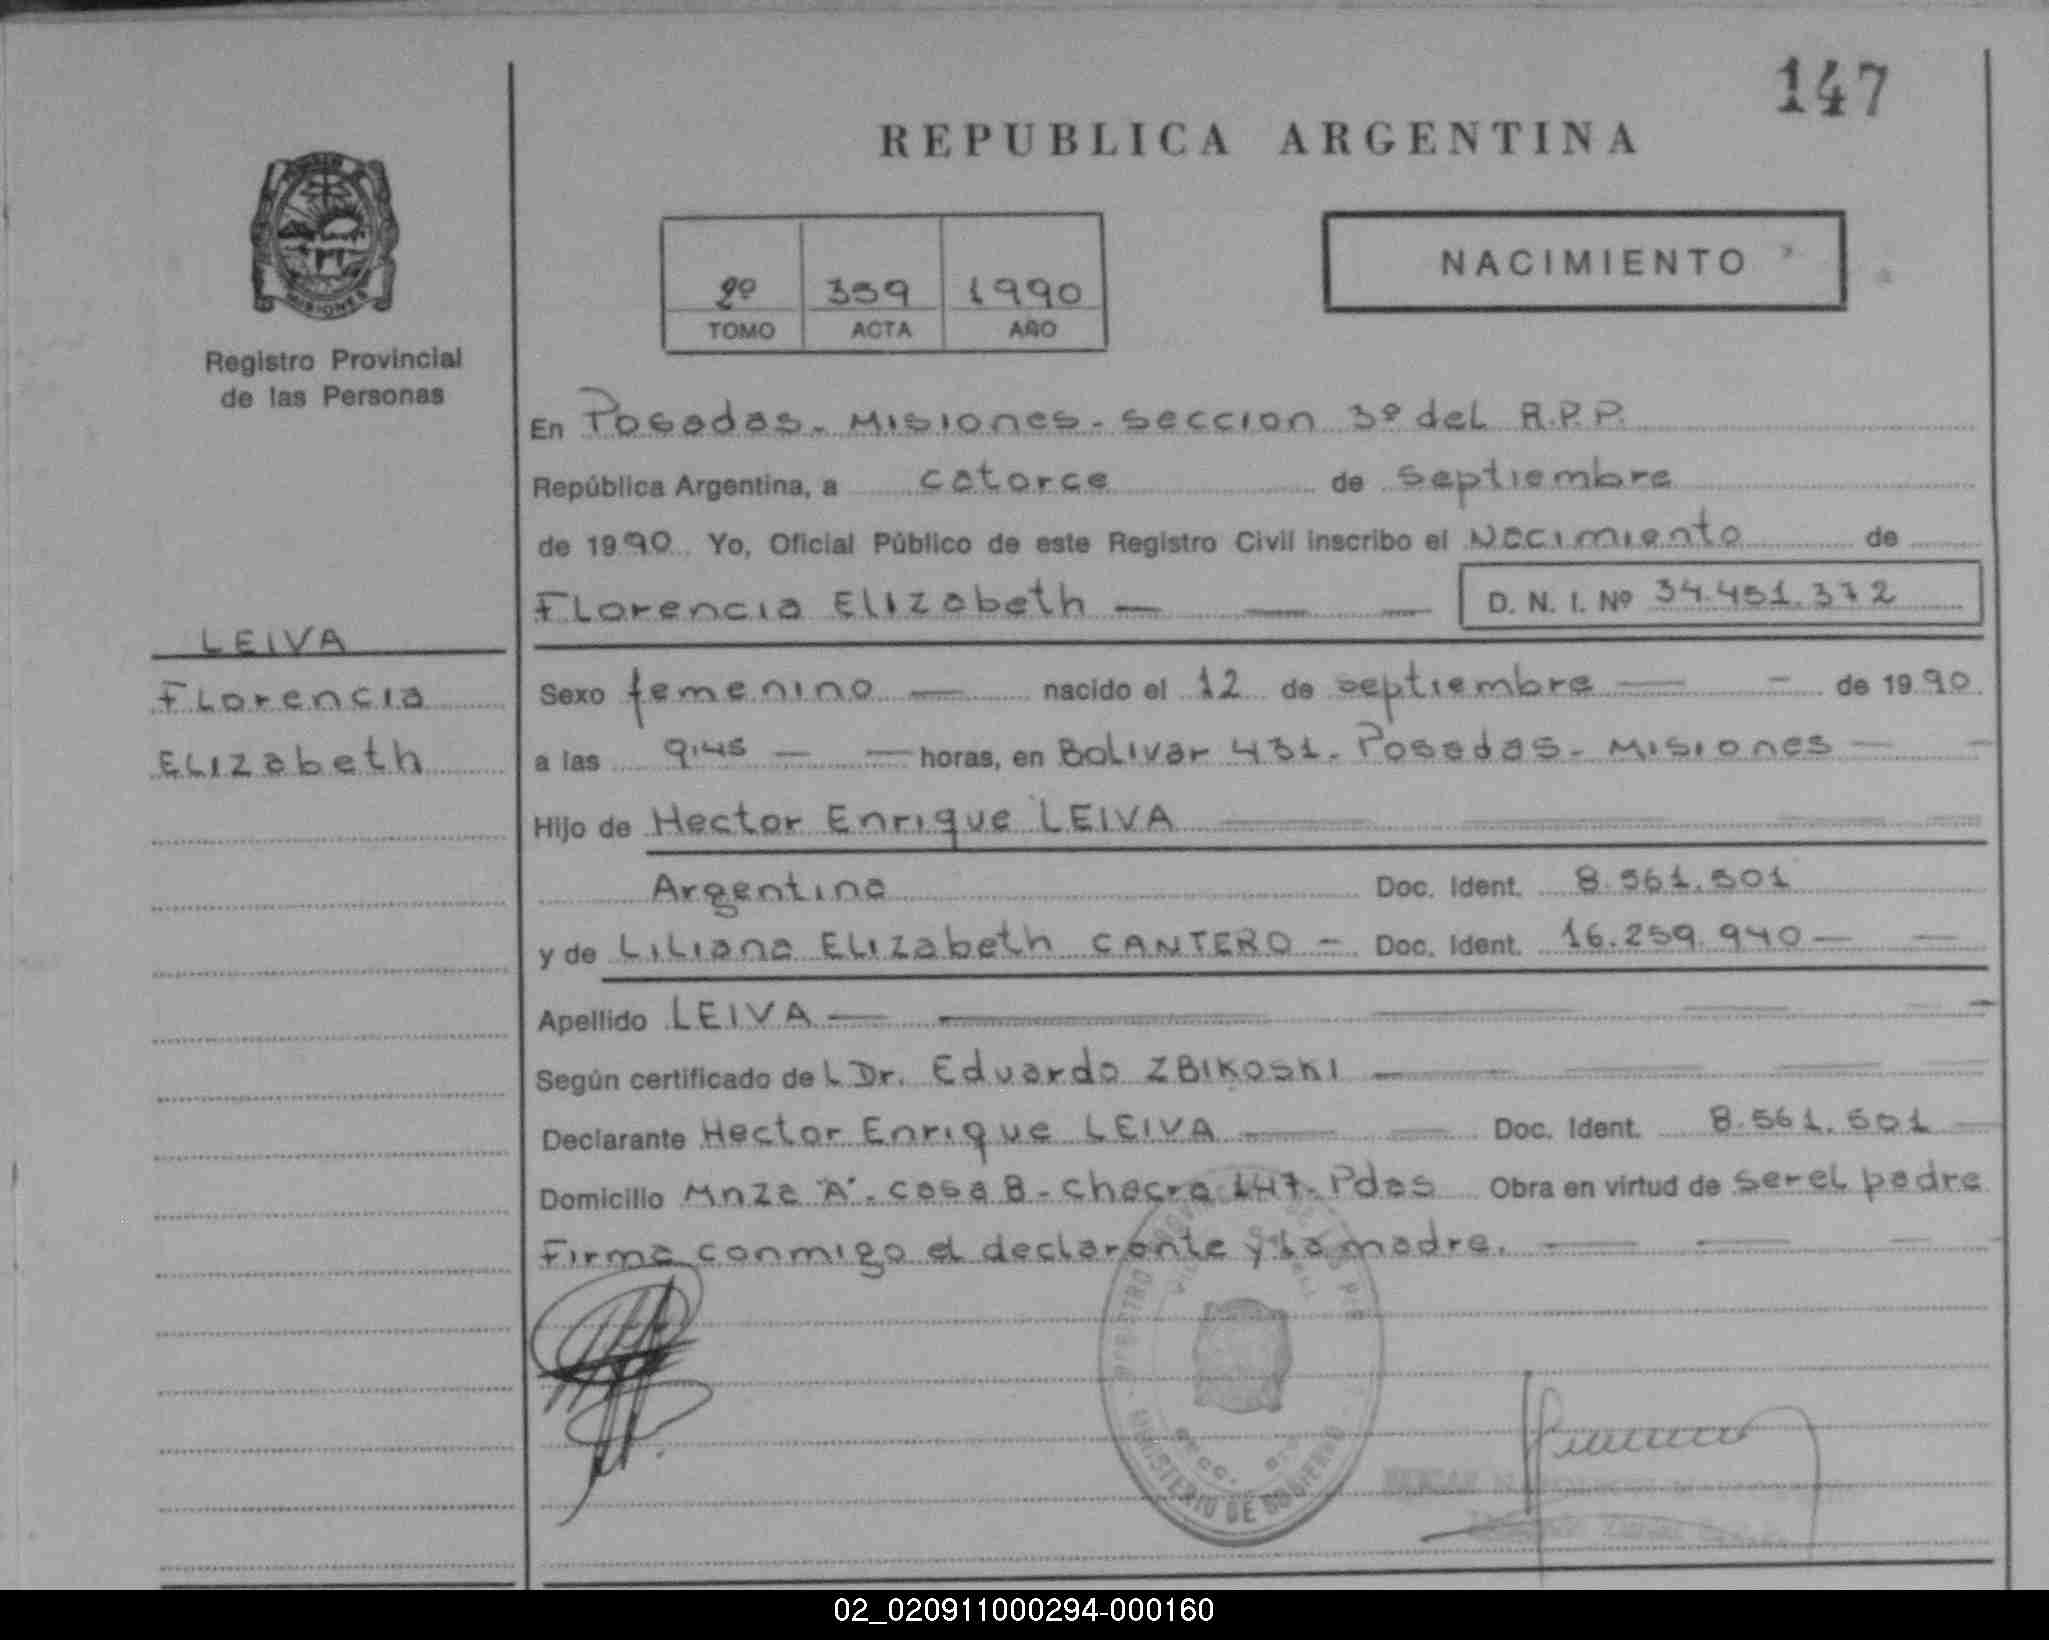 147
REPUBLICA ARGENTINA
2º 359 1990
TOMO ACTA AÑO
NACIMIENTO
MISIONES
Registro Provincial
de las Personas
En Posadas - Misiones - seccion 3º del R.P.P.
República Argentina, a catorce de septiembre
de 1990. Yo, Oficial Público de este Registro Civil inscribo el Nacimiento de
Florencia Elizabeth — — — D. N. I. Nº 34.451.372
LEIVA
Florencia
Elizabeth
Sexo femenino — nacido el 12 de septiembre — - de 1990.
a las 9:45 — — horas, en Bolivar 431 - Posadas - Misiones — -
Hijo de Hector Enrique LEIVA
Argentina Doc. Ident. 8.561.501
y de Liliana Elizabeth CANTERO - Doc. Ident. 16.259.940 — —
Apellido LEIVA —
Según certificado del Dr. Eduardo ZBIKOSKI —
Declarante Hector Enrique LEIVA — — Doc. Ident. 8.561.501 —
Domicilio Mnza "A" - casa 8 - chacra 147 - Pdas Obra en virtud de ser el padre
Firma conmigo el declarante y la madre. — — -
MINISTERIO DE GOBIERNO
02_020911000294-000160